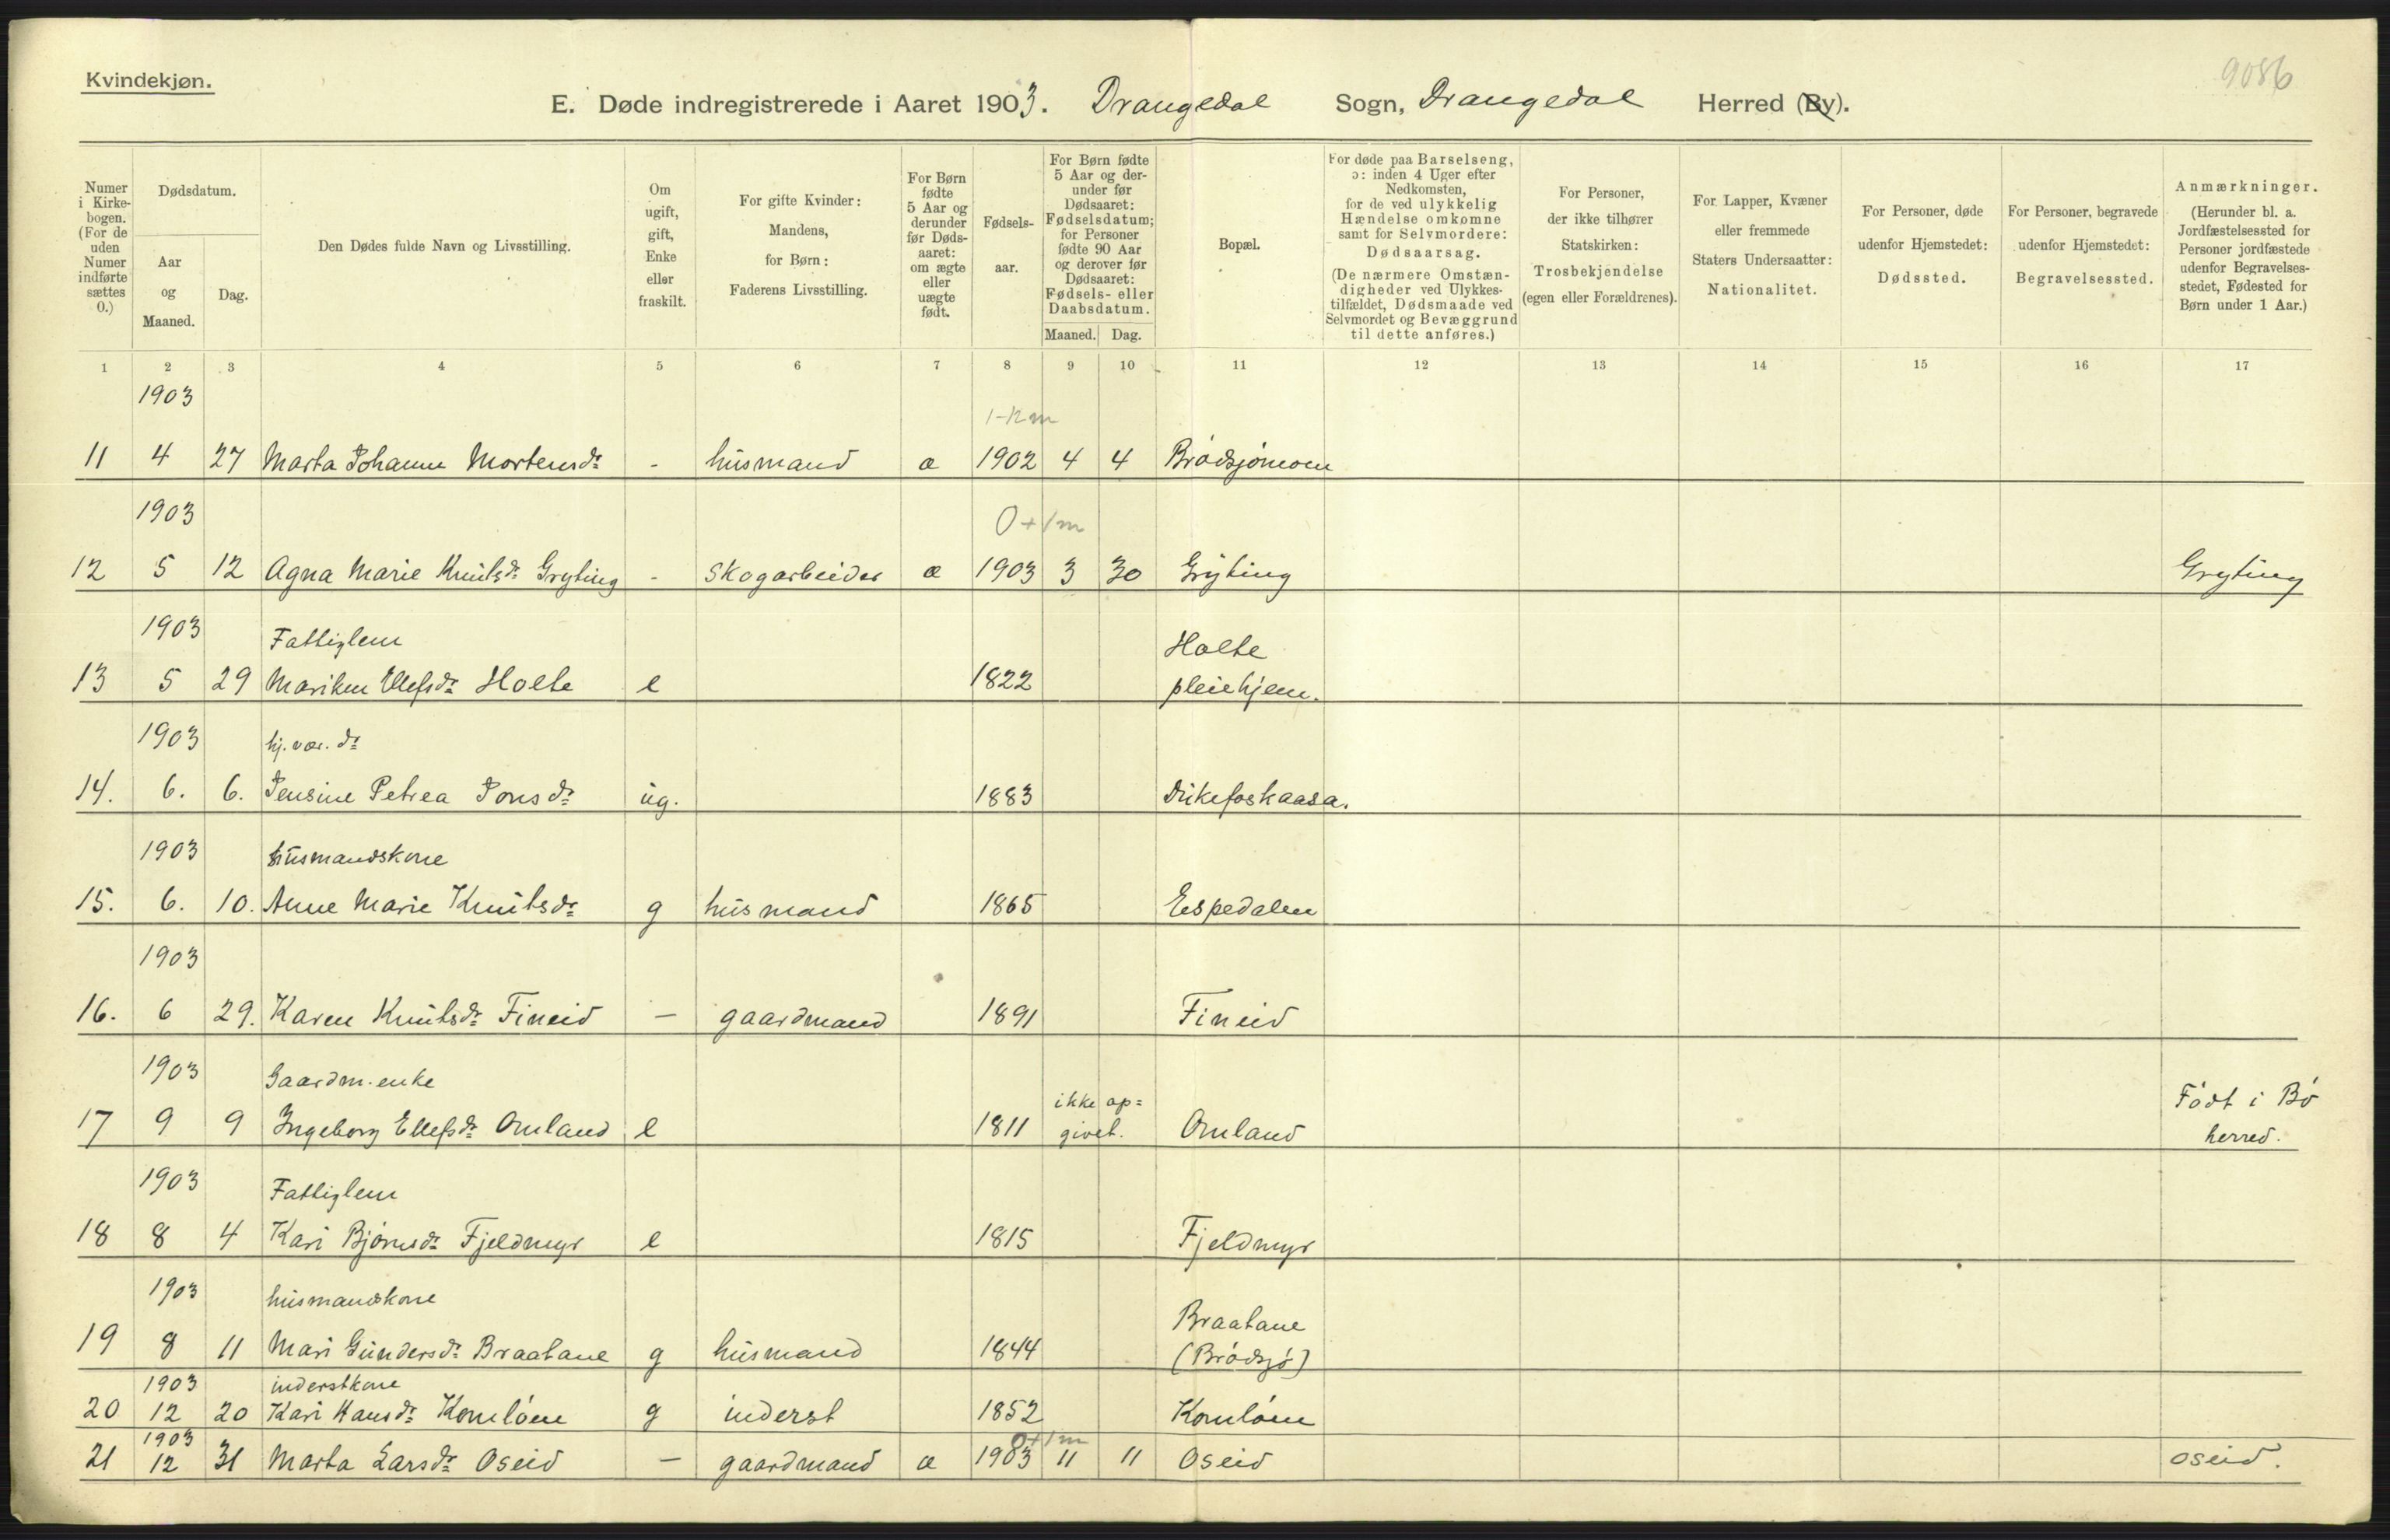 Kvindekjøn.
9086
E. Døde indregistrerede i Aaret 1903. Drangedal Sogn, Drangedal Herred (By).
Numer i Kirkebogen. (For de uden Numer indførte sættes 0.)
Dødsdatum.
Aar og Maaned.
Dag.
Den Dødes fulde Navn og Livsstilling.
Om ugift, gift, Enke eller fraskilt.
For gifte Kvinder: Mandens, for Børn: Faderens Livsstilling.
For Børn fødte 5 Aar og derunder før Dødsaaret: om ægte eller uægte født.
Fødselsaar.
For Børn fødte 5 Aar og derunder før Dødsaaret: Fødselsdatum; for Personer fødte 90 Aar og derover før Dødsaaret: Fødsels- eller Daabsdatum.
Maaned. Dag.
Bopæl.
For døde paa Barselseng, ɔ: inden 4 Uger efter Nedkomsten, for de ved ulykkelig Hændelse omkomne samt for Selvmordere: Dødsaarsag. (De nærmere Omstændigheder ved Ulykkestilfældet, Dødsmaade ved Selvmordet og Bevæggrund til dette anføres.)
For Personer, der ikke tilhører Statskirken: Trosbekjendelse (egen eller Forældrenes).
For Lapper, Kvæner eller fremmede Staters Undersaatter: Nationalitet.
For Personer, døde udenfor Hjemstedet: Dødssted.
For Personer, begravede udenfor Hjemstedet: Begravelsessted.
Anmærkninger. (Herunder bl. a. Jordfæstelsessted for Personer jordfæstede udenfor Begravelsesstedet, Fødested for Børn under 1 Aar.)
1 2 3 4 5 6 7 8 9 10 11 12 13 14 15 16 17
1903
1-12m
11 4 27 Marta Johanne Mortensdr - husmand æ 1902 4 4 Brødsjømoen
1903
0+1m
12 5 12 Agna Marie Knutsdr Gryting - Skogarbeider æ 1903 3 30 Gryting Gryting
1903 Fattiglem Holte
13 5 29 Mariken Ellefsdr Holte e 1822 pleiehjem.
1903 hj. vær. dr
14. 6. 6. Jensine Petrea Jonsdr ug. 1883 Dikefoskaasa.
1903 husmandskone
15. 6. 10. Anne Marie Knutsdr g husmand 1865 Espedalen
1903
16. 6 29. Karen Knutsdr Fineid — gaardmand 1891 Fineid
1903 Gaardm. enke ikke op= Født i Bø
17 9 9 Ingeborg Ellefsdr Omland e 1811 givet. Omland herred.
1903 Fattiglem
18 8 4 Kari Bjørnsdr Fjeldmyr e 1815 Fjeldmyr
1903 husmandskone Braatane
19 8 11 Mari Gundersdr Braatane g husmand 1844 (Brødsjø)
1903 inderstkone
20 12 20 Kari Hansdr Komløen g inderst 1852 Komløen
1903 0+1m
21 12 31 Marta Larsdr Oseid — gaardmand æ 1903 11 11 Oseid oseid.